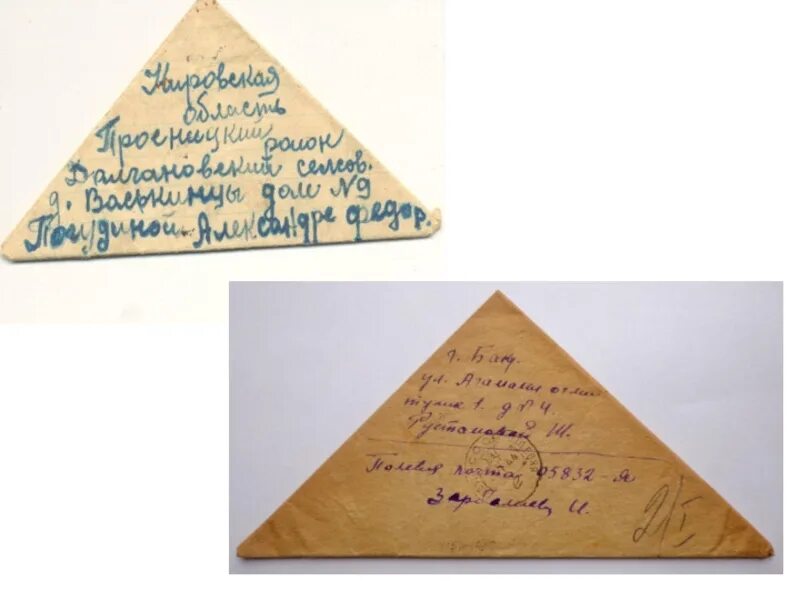 Кировская
область
Просницкий район
Далгановский селсов.
д. Васькинцы дом №9
Погудиной Александре Федор.
г. Баку
ул.
тупик 1. д № 4
Рустамовой Ш.
Полевая почта 05832-Я
И.